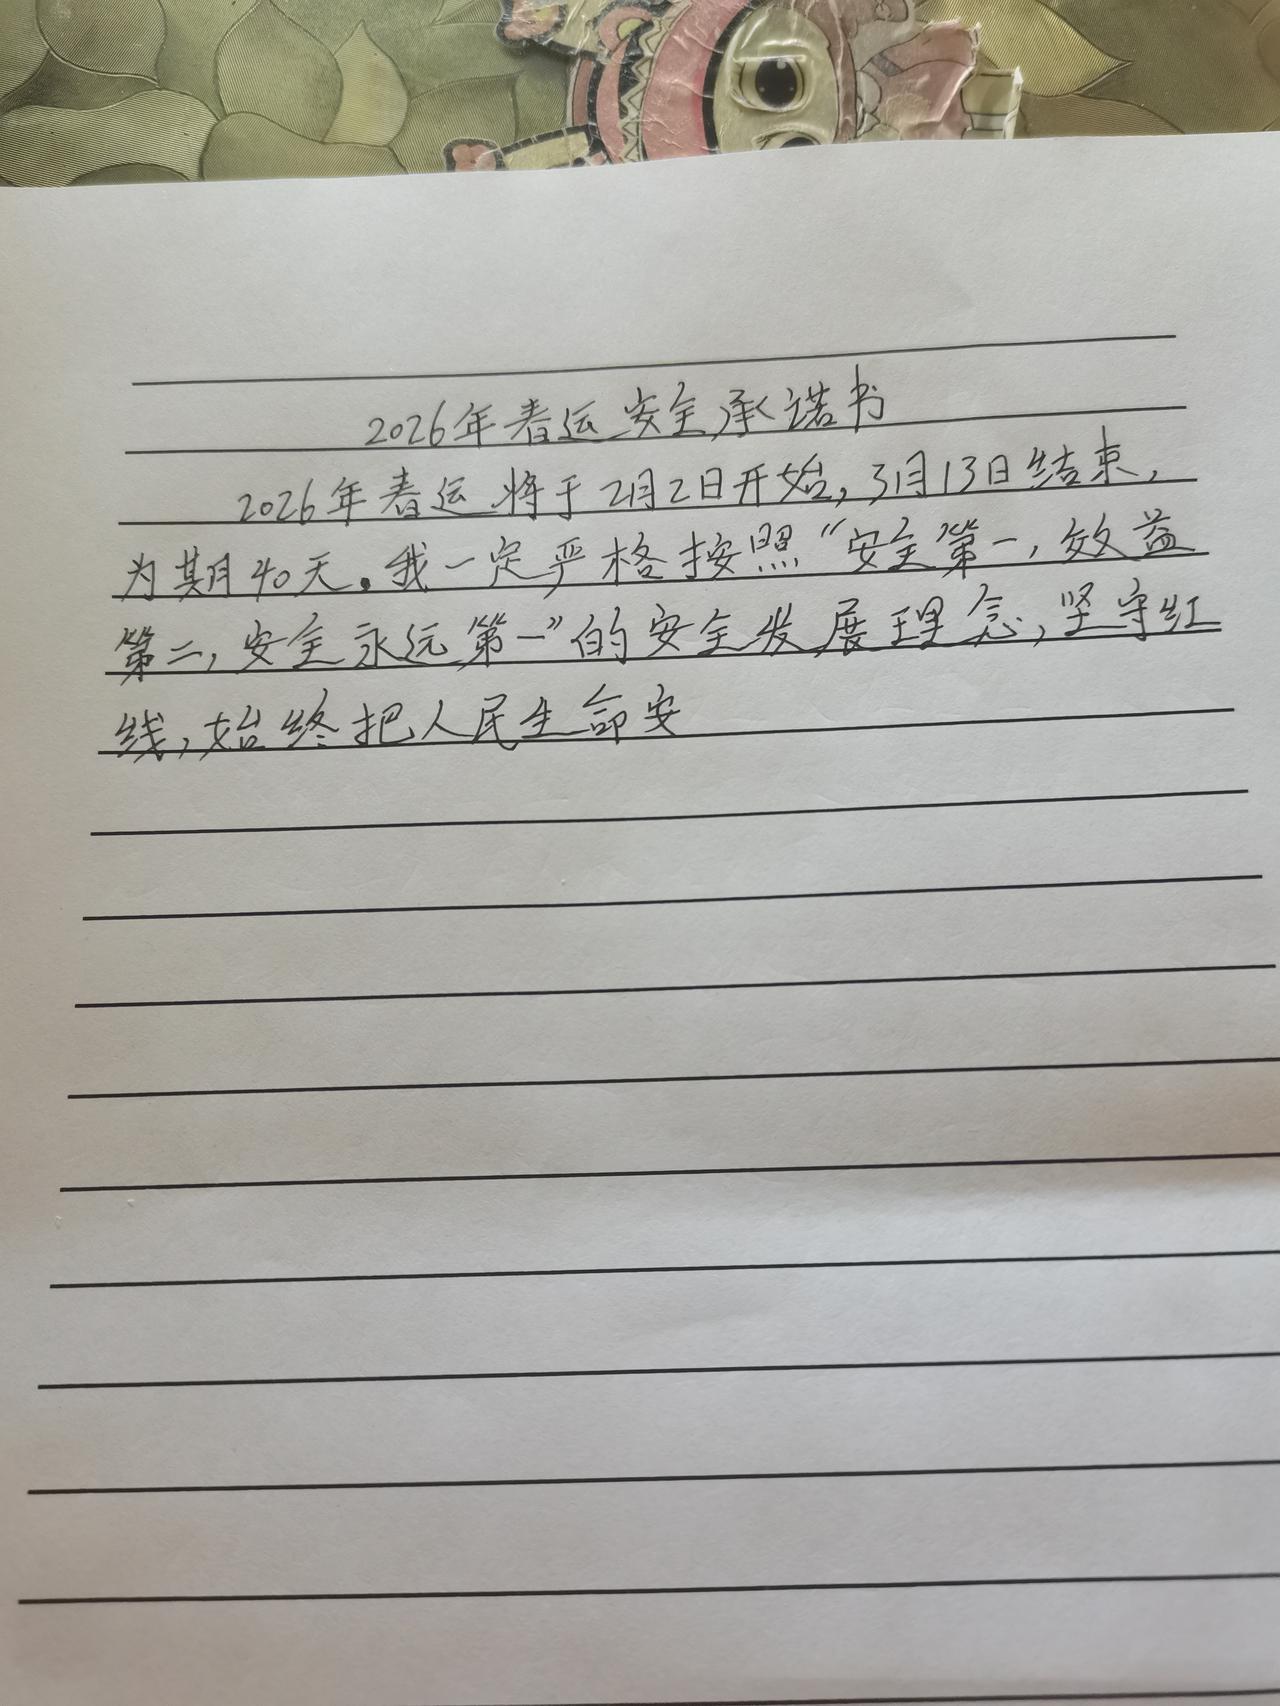 2026年春运安全承诺书
2026年春运将于2月2日开始,3月13日结束,
为期40天。我一定严格按照“安全第一,效益
第二,安全永远第一”的安全发展理念,坚守红
线,始终把人民生命安